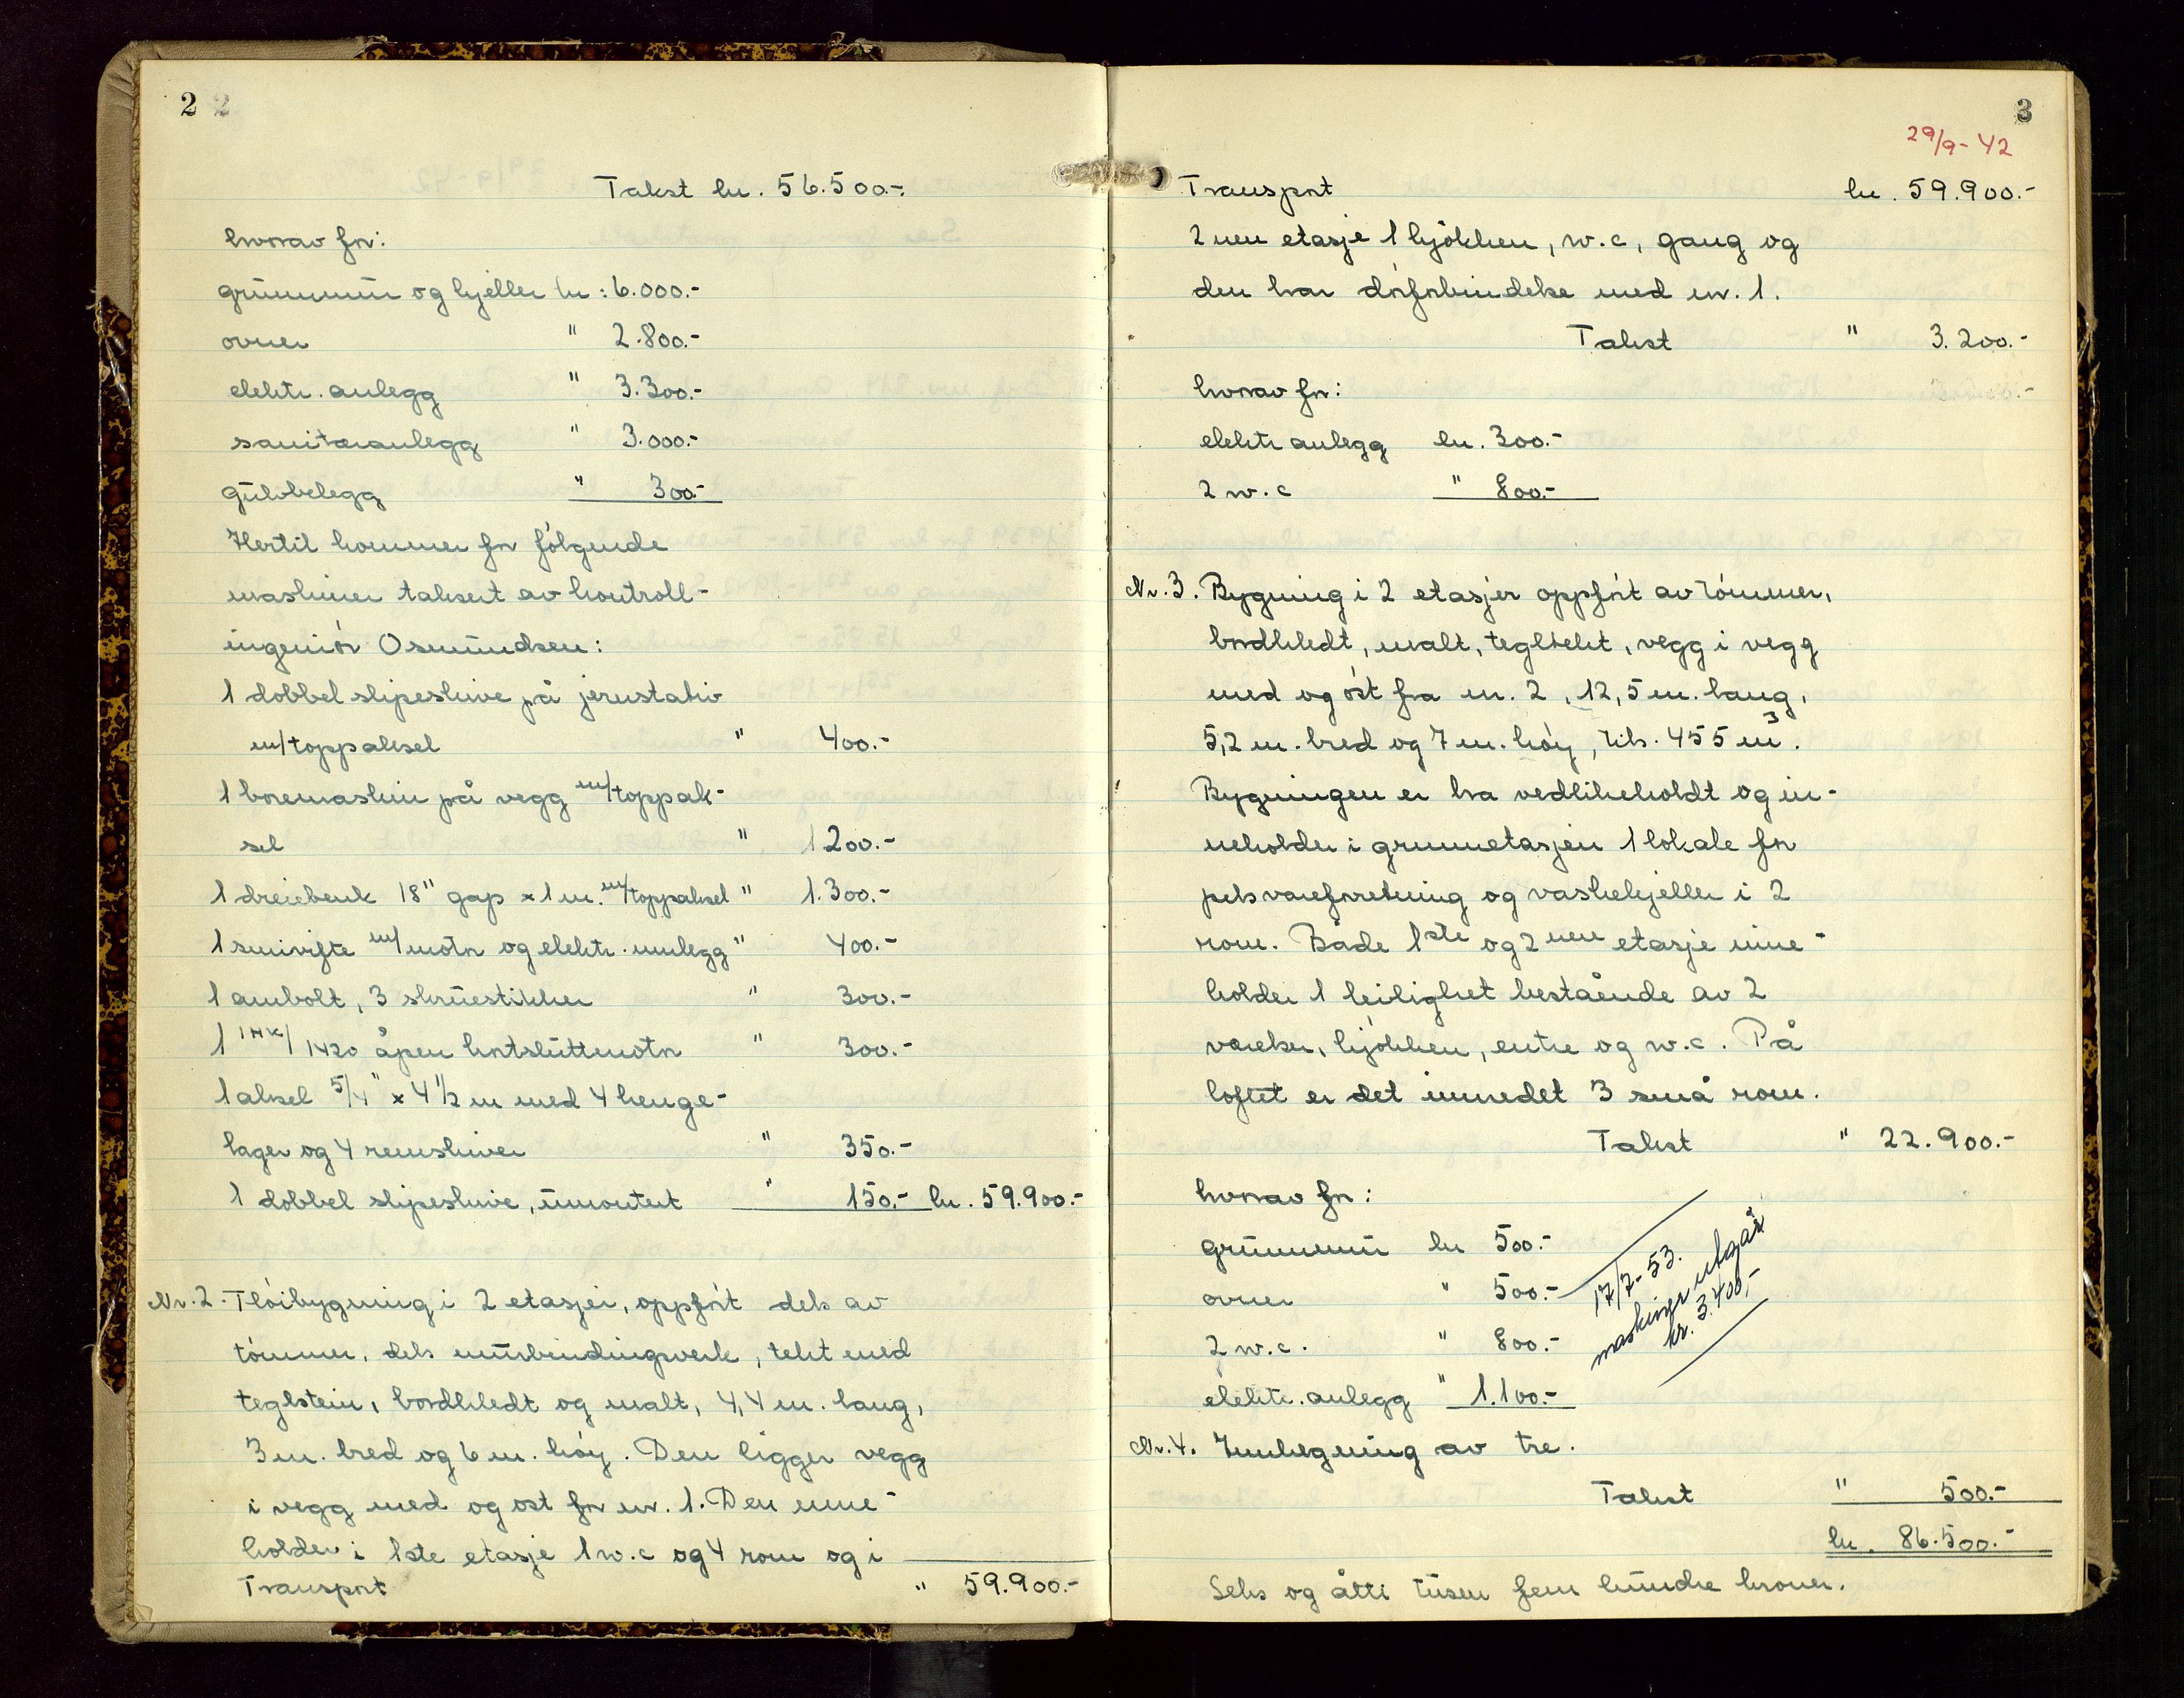 2 2
Takst kr. 56.500.-
hvorav for:
grunnmur og kjeller kr: 6.000.-
ovner " 2.800.-
elektr. anlegg " 3.300.-
sanitæranlegg " 3.000.-
gulvbelegg " 300.-
Hertil kommer for følgende
maskiner taksert av kontroll-
ingeniør Osmundsen:
1 dobbel slipeskive på jernstativ
m/toppaksel " 400.-
1 boremaskin på vegg m/toppak-
sel " 1200.-
1 dreiebenk 18" gap x 1 m. m/toppaksel " 1.300.-
1 smivifte m/motor og elektr. innlegg " 400.-
1 ambolt, 3 skruestikker " 300.-
1 1HK/1420 åpen kortsluttmotor " 300.-
1 aksel 5/4" x 4 1/2 m med 4 henge-
lager og 4 remskiver " 350.-
1 dobbel slipeskive, umontert " 150.- kr. 59.900.-
Nr. 2. Fløibygning i 2 etasjer, oppført dels av
tømmer, dels murbindingverk, tekt med
teglstein, bordkledt og malt, 4,4 m. lang,
3 m. bred og 6 m. høy. Den ligger vegg
i vegg med og ost for nr. 1. Den inne-
holder i 1ste etasje 1 w.c og 4 rom og i
Transport " 59.900.-
3
29/9- 42
Transport kr. 59.900.-
2nen etasje 1 kjøkken, w.c, gang og
den har dørforbindelse med nr. 1.
Takst " 3.200.-
hvorav for:
elektr anlegg kr. 300.-
2 w.c " 800.-
Nr. 3. Bygning i 2 etasjer oppført av tømmer,
bordkledt, malt, tegltekt, vegg i vegg
med og øst fra nr. 2, 12,5 m. lang,
5,2 m. bred og 7 m. høy, tils. 455 m³.
Bygningen er bra vedlikeholdt og in-
neholder i grunnetasjen 1 lokale for
pelsvareforretning og vaskekjeller i 2
rom. Både 1ste og 2nen etasje inne-
holder 1 leilighet bestående av 2
værelser, kjøkken, entre og w.c. På
loftet er det innredet 3 små rom.
Takst " 22.900.-
hvorav for:
grunnmur kr 500.-
ovner " 500.-
2 w.c. " 800.-
elektr. anlegg " 1.100.-
17/7-53.
maskiner utgår
kr. 3.400,-
Nr. 4. Innhegning av tre.
Takst " 500.-
kr. 86.500.-
Seks og åtti tusen fem hundre kroner.